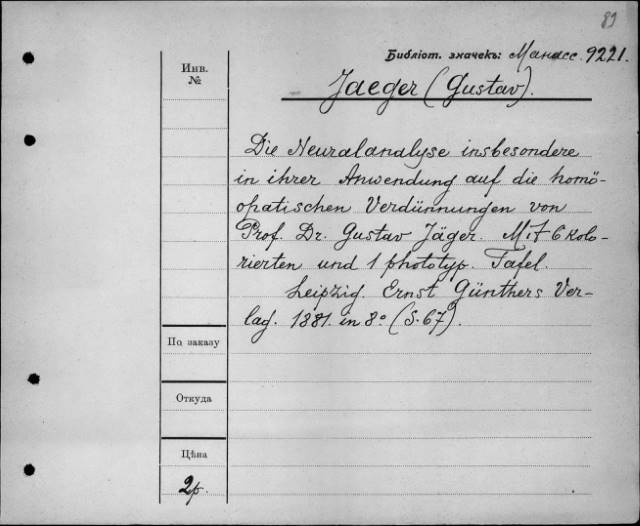 89
Библіот. значекъ: Манасс. 9221.
Инв. №
Jaeger (Gustav).
Die Neuralanalyse insbesondere
in ihrer Anwendung auf die homö-
opatischen Verdünnungen von
Prof. Dr. Gustav Jäger. Mit 6 kolo-
rierten und 1 phototyp. Tafel.
Leipzig. Ernst Günthers Ver-
lag. 1881. in 8° (S. 67).
По заказу
Откуда
Цѣна
2р.